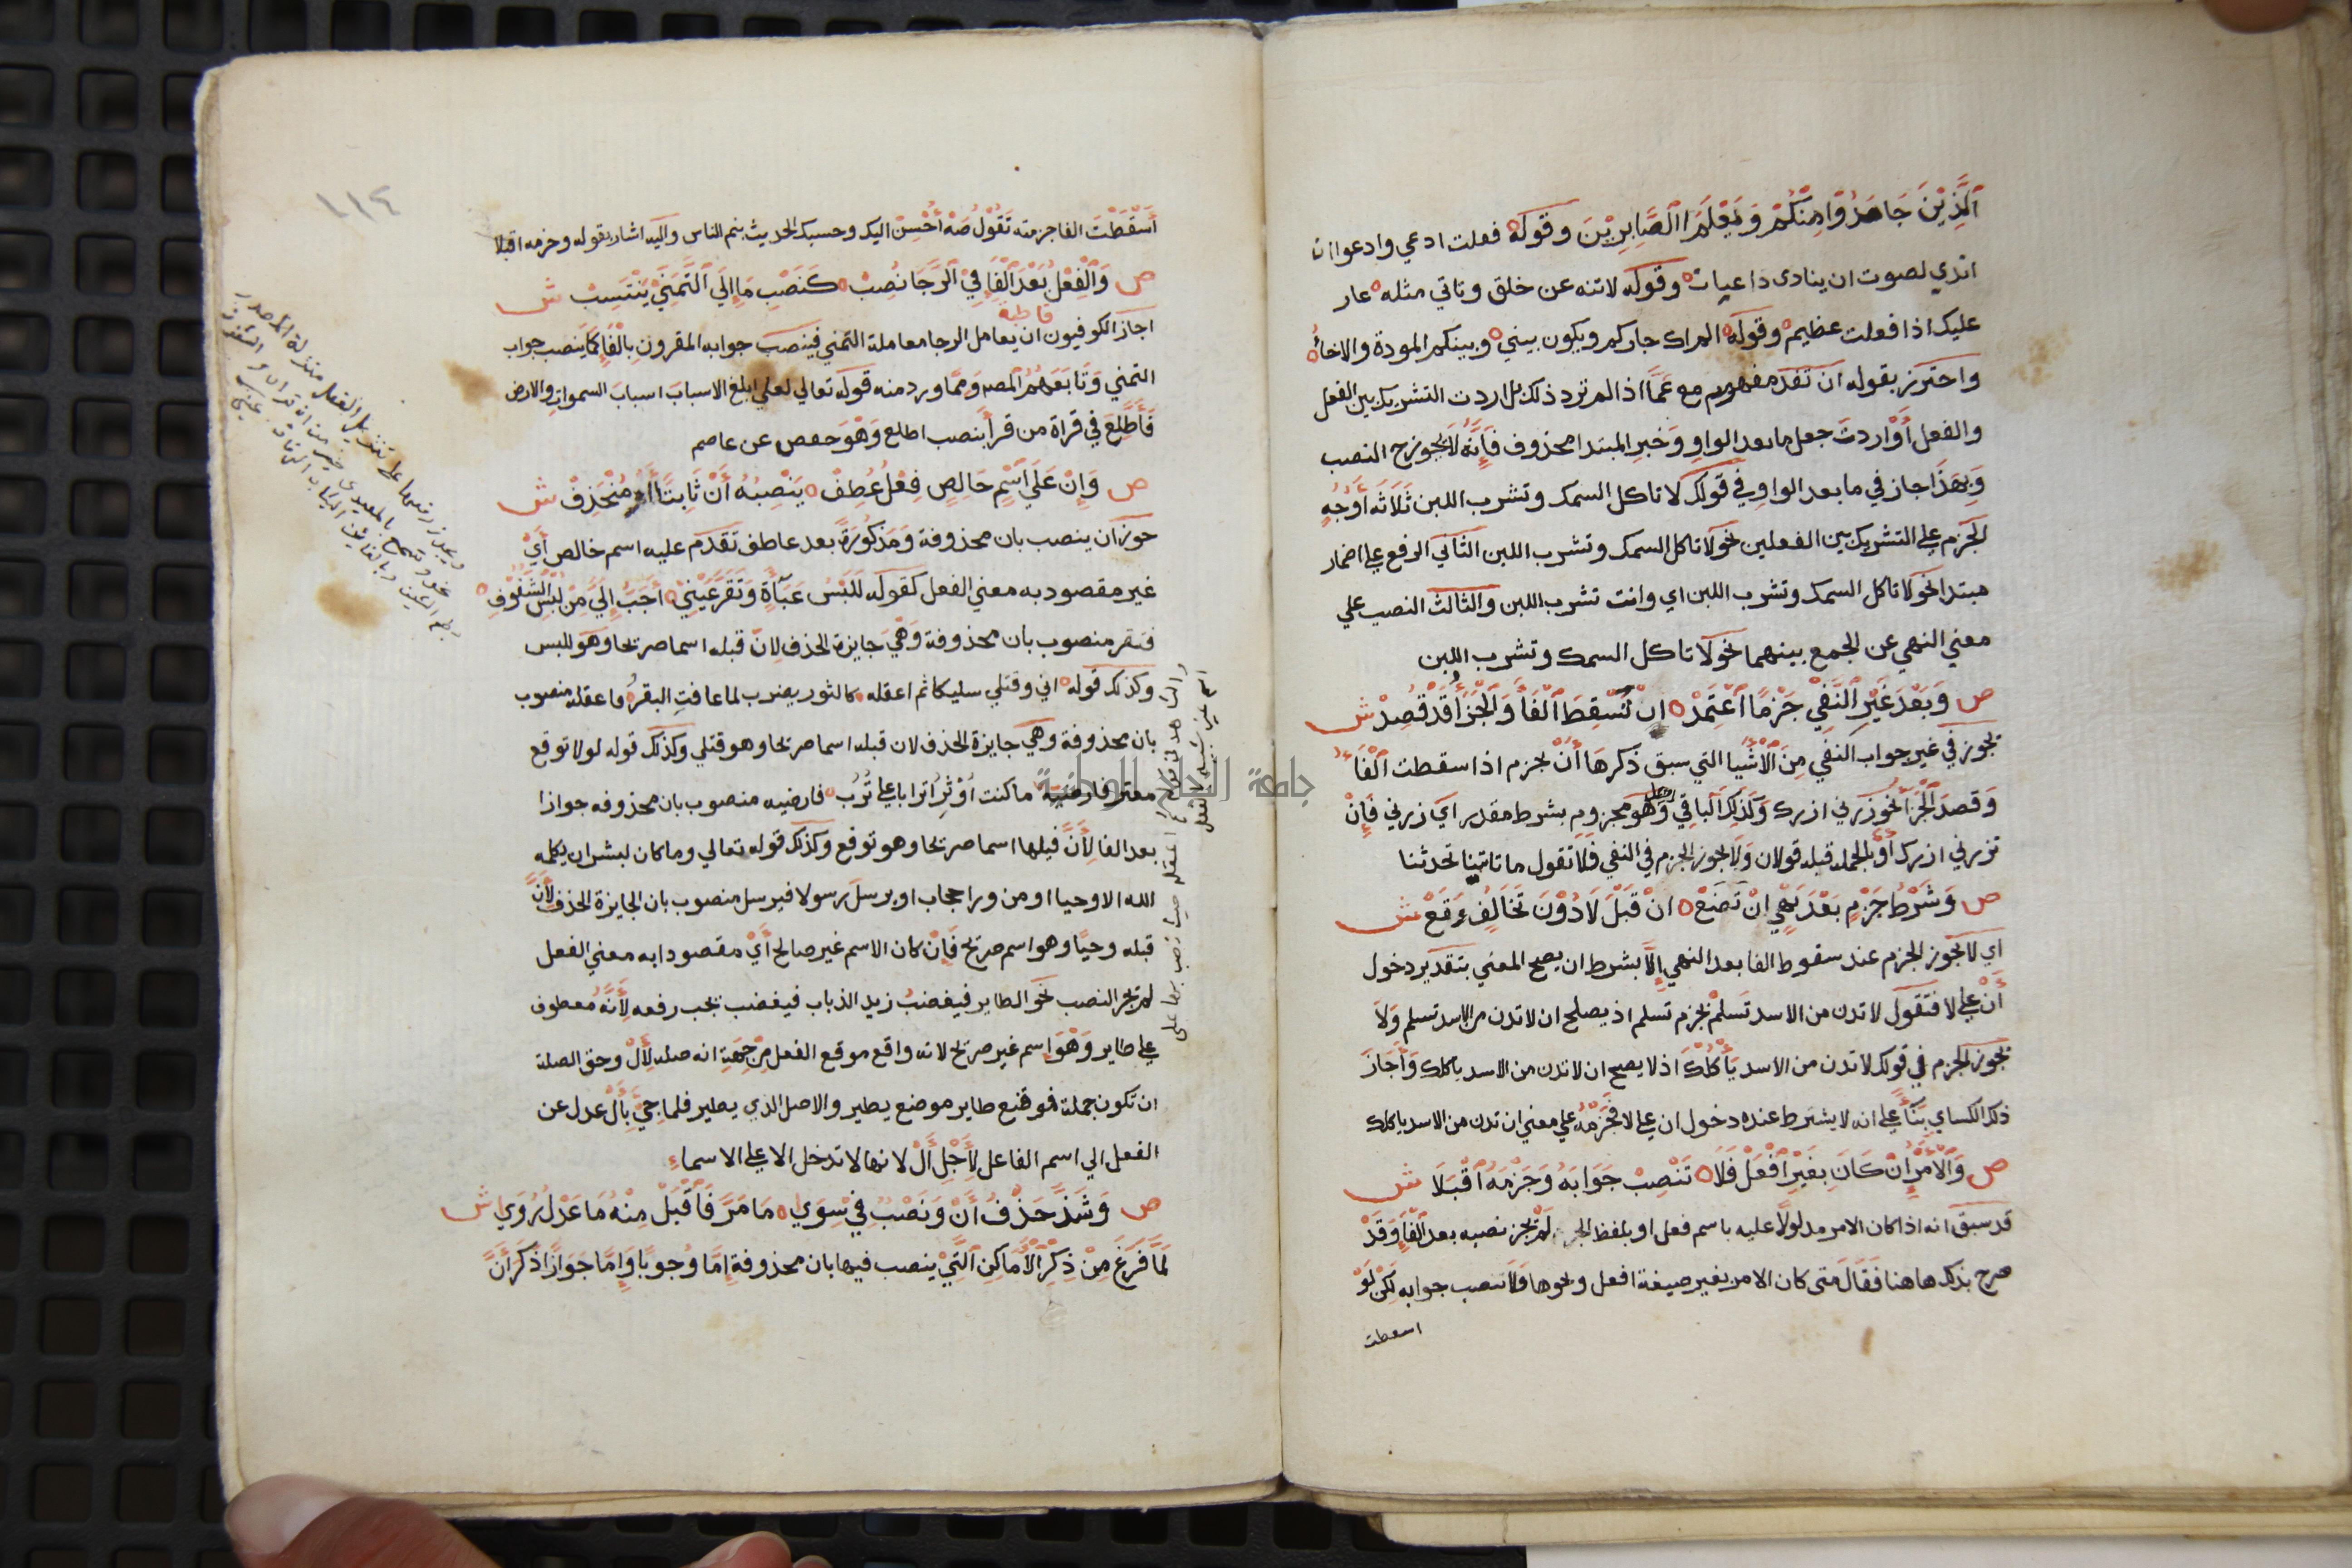 الَّذِيْنَ جَاهَدُوْا مِنْكُمْ وَيَعْلَمَ الصَّابِرِيْنَ وقوله فعلت ادعي وادعوا ان
اندي لصوت ان ينادى داعيات وقوله لاتنه عن خلق وتاتي مثله عار
عليك اذا فعلت عظيم وقوله الم اك جاركم ويكون بيني وبينكم المودة والاخاء
واحترز بقوله ان تفد مفهوم مع عمّا اذا لم ترد ذلك بل اردت التشريك بين الفعل
والفعل أَوْ اردتَ جعل ما بعد الواو وَخبرِ المبتدا محذوف فَإنّه لَا يجوزح النصب
وَلِهَذَا جاز في ما بعد الواوِ في قولك لا تاكل السمك وتشرب اللبن ثَلَاثَه أَوْجُهٍ
الجزم علي التشريك بين الفعلين نحو لا تاكل السمك وتشرب اللبن الثاني الرفع علي اضمار
مبتدا نحو لا تاكل السمك وتشرب اللبن اي وانت تشرب اللبن والثالث النصب علي
معني النهي عن الجمع بينهما نحو لا تاكل السمك وتشرب اللبن
ص وَبَعْدَ غَيْرِ النَّفْيِ جَزْمًا اعْتَمِدْ ان تُسْقِطَ الْفَا وَالْجَزَأُ قَدْ قُصِدْ ش
يجوز في غير جواب النفي مِنَ الْأَشْيَا التي سبق ذكرها أَنْ يجزم اذا سقطت الْفَاءُ
وَقصدَ الْجَزَا نحو زرني ازرك وَكَذلِكَ الْبَاقِي وَهَلْ هو مجزوم بشرط مقدر اي زرني فَإِنْ
تزرني ازرك أَوْ بالجمله قبله قولان وَلَا يجوز الجزم في النفي فَلَا تقول ما تاتينا تحدثنا
ص وَشَرْطُ جَزْمٍ بَعْدَ نَهْيٍ انْ تَضَعْ ان قَبْلَ لَا دُوْنَ تَخَالُفٍ وَقَعْ ش
اي لا يجوز الجزم عند سقوط الفا بعد النهي إِلَّا بشرط ان يصح المعني بتقدير دخول
أَنْ علي لا فتقول لا تدن من الاسد تَسلمْ بجزم تسلم اذ يصلح ان لا تدن من الاسد تسلم وَلَا
يجوز الجزم في قولك لا تدن من الاسد يَأْكُلْكَ اذ لا يصح ان لا تدن من الاسد ياكلك وَأَجَازَ
ذلك الكساي بِنَاً علي انه لا يشترط عنده دخول ان علي لا فَجَزْمُهُ علي معني ان تدن من الاسد ياكلك
ص وَالْأَمْرُ إِنْ كَانَ بِغَيْرِ افْعَلْ فَلَا تَنْصِبْ جَوَابَهُ وَجَزْمَهُ اقْبَلَا ش
قد سبق انه اذا كان الامر مدلولًا عليه باسم فعل او بلفظ الخبر لَمْ يجز نصبه بعد الْفَإِ وَقَدْ
صرح بذلك هاهنا فَقَالَ متى كان الامر بغير صيغة افعل ونحوها فَلَا تنصب جوابه لَكِنْ لَوْ
اسقطت
١١٤
أَسْقَطْتَ الفا جزمته تَقُوْلُ صَهْ أُحْسِنْ اليك وحسبك الحديث ينم الناس واليه اشار بقوله وجزمه اقبلا
ص وَالْفِعْلُ بَعْدَ الْفَاِ فِيْ الرَّجَا نُصِبْ كَنَصْبِ مَا إِلَى التَّمَنِّيْ يَنْتَسِبْ ش
قاطبة
اجاز الكوفيون ان يعامل الرجا معاملة التمني فينصب جوابه المقرون بِالْفَا كما ينصب جواب
التمني وَتَابَعَهُمُ المص وَمِمَّا ورد منه قوله تعالي لعلي ابلغ الاسباب اسباب السموات والارض
فَأَطَّلِعَ في قراة من قرأ بنصب اطلع وَهْوَ حفص عن عاصم
ص وَإِنْ عَلَي اسْمٍ خَالِصٍ فِعْلٌ عُطِفْ يَنْصِبُهُ أَنْ ثَابِتًا اوْ مُنْحَذِفْ ش
جوز ان ينصب بان محذوفة وَمَذكُوْرَةً بعد عاطف تَقدم عليه اسم خالص أَيْ
غير مقصود به معني الفعل كقوله لَلُبْسُ عَبَآءَةٍ وَتَقَرَّ عَيْنِيْ أَحَبُّ إِلَيَّ مِنْ لُبْسِ الشُّفُوْفِ
فتقر منصوب بان محذوفة وَهْيَ جَايزة الحذف لِانّ قبله اسما صريحا وهو للبس
وكذلك قوله اني وقتلي سليكا ثم اعقله كالثور يضرب لما عافتِ البقرُ فاعقله منصوب
بان محذوفة وهي جايزة الحذف لان قبله اسما صريحا وهو قتلي وكذلك قوله لولا توقع
معتر فارضيه ما كنت اُوْثِرُ اترابا علي تُرْبِ فارضيه منصوب بان محذوفه جوازا
بعد الفا لِأَنَّ قبلها اسما صريحا وهو توقع وكذلك قوله تعالي وما كان لبشر ان يكلمه
الله الا وحيا او من ورا حجاب او يرسل رسولا فيرسل منصوب بان الجايزة الحذف لِأَنَّ
قبله وحيًا وهو اسم صريح فَإِنْ كان الاسم غير صالح أَيْ مقصودا به معني الفعل
لم يجز النصب نحو الطاير فيغضبُ زيد الذباب فيغضب يجب رفعه لِأَنَّهُ معطوف
علي طاير وَهْوَ اسم غير صريح لانه واقع موقع الفعل مِنْ جِهَةِ انه صله لِأَلْ وحق الصلة
ان تكون جملة فوضع طاير موضع يطير والاصل الذي يطير فلما جِيْءَ بِأَلْ عدل عن
الفعل الي اسم الفاعل لِأَجْلِ أَلْ لانها لا تدخل الا علي الاسماءِ
ص وَشَذَّ حَذْفُ أَنْ وَنَصْبٌ فِيْ سِوَي مَا مَرَّ فَاقْبَلْ مِنْهُ مَا عَدْلٌ رُوَي ش
لَمَّا فَرَغَ مِنْ ذِكْرِ الْأَمَاكِنِ الَّتِيْ ينصب فيها بان محذوفة إِمَّا وُجوبًا وَإِمَّا جَوَازًا ذَكَرَ أَنَّ
جامعة النجاح الوطنية